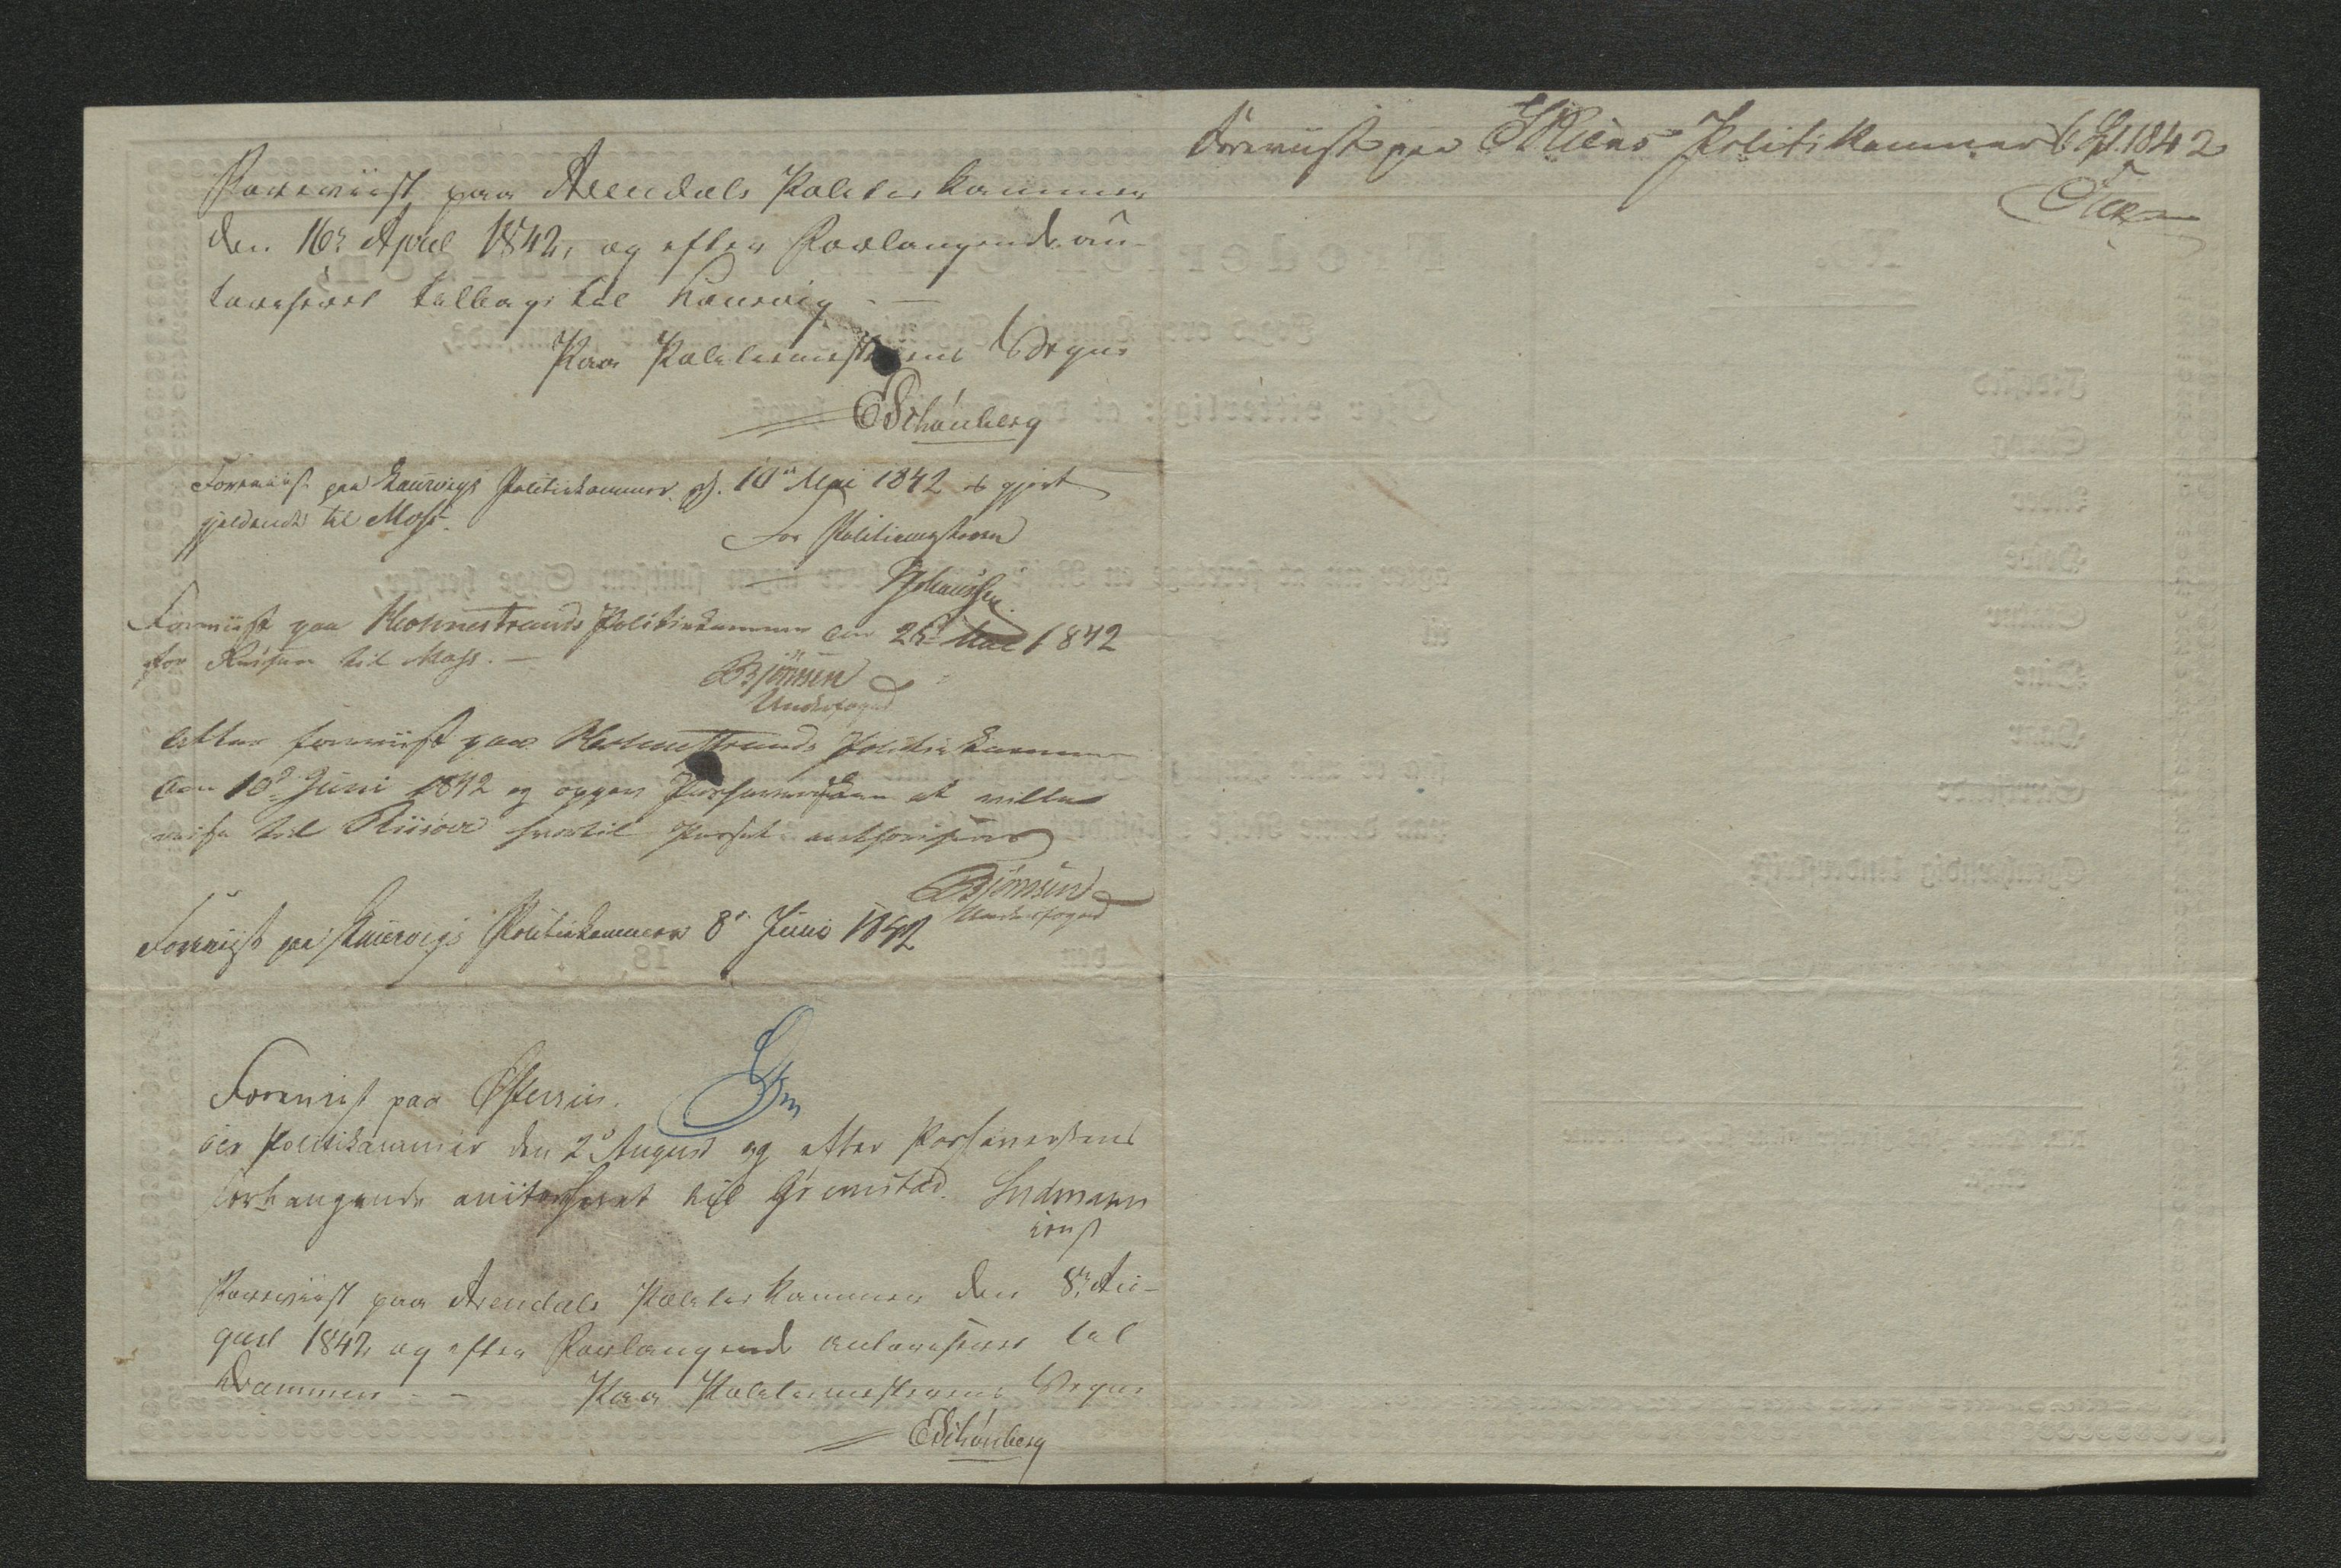 Foreviist paa Arendals Politiekammer
den 16de April 1842, og efter Forlangende au-
toriseret tilbage til Laurvig
Paa Politiemesterens Vegne
ESchönberg
Foreviist paa Laurvigs Politiekammer d. 10de Mai 1842 og gjort
gjeldende til Moss.
For Politiemesteren
Foreviist paa Holmestrands Politiekammer den 25d Mai 1842
for Reisen til Moss.
Björnsen
Underfoged
Atter foreviist paa Holmestrands Politiekammer
den 10d Juni 1842 og opgav Passinnehaveren at ville
reise til Riisøer hvortil Passet authoriseres
Björnsen
Underfoged
Foreviist paa Laurvigs Politiekammer 8de Juni 1842
Foreviist paa Østerriis-
øer Politikammer den 2d August og efter Passinnehaverens
Forlangende autoriseret til Grimstad. Lindmann
const
Foreviist paa Arendals Politiekammer den 8de Au-
gust 1842 og efter Forlangende autoriseret til
Drammen
Paa Politiemesterens Vegne
ESchönberg
Foreviist paa Skiens Politikammer 6 1842